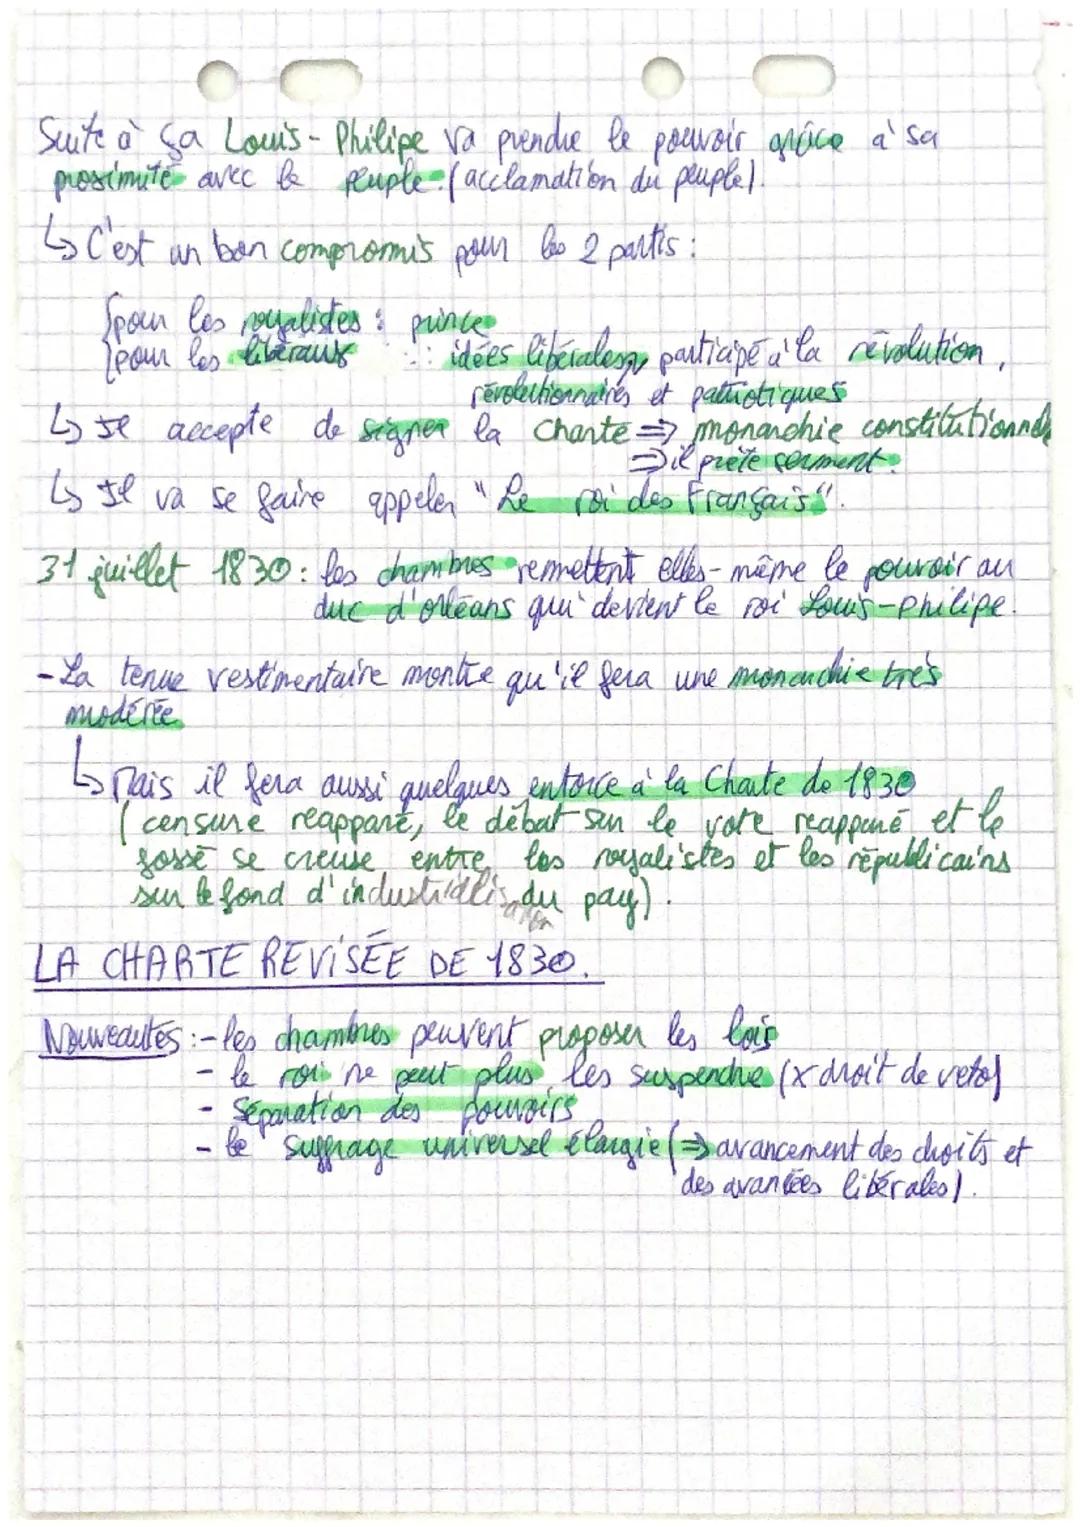 Suite à ça Louis-Philipe va prendre le pouvoir grâce à sa
proximité avec le peuple. (acclamation du peuple).
↳ C'est un bon compromis pour les 2 partis :
{pour les royalistes : prince
{pour les libéraux : idées libérales, participé à la révolution,
révolutionnaires et patriotiques
↳ Il accepte de signer la Charte ⇒ monarchie constitutionnelle
⇒ il prête serment.
↳ Il va se faire appeler "Le roi des Français".
31 juillet 1830 : les chambres remettent elles-même le pouvoir au
duc d'orléans qui devient le roi Louis-Philipe.
- La tenue vestimentaire montre qu'il fera une monarchie très
modérée
↳ Mais il fera aussi quelques entorce à la Charte de 1830
(censure réapparé, le débat sur le vote réapparé et le
fossé se creuse entre les royalistes et les républicains
sur le fond d'industriallisation du pay).
LA CHARTE REVISÉE DE 1830.
Nouveautés : - les chambres peuvent proposer les lois
- le roi ne peut plus les suspendre (x droit de veto)
- Séparation des pouvoirs
- le suffrage universel élargie (⇒ avancement des droits et
des avantées libérales).